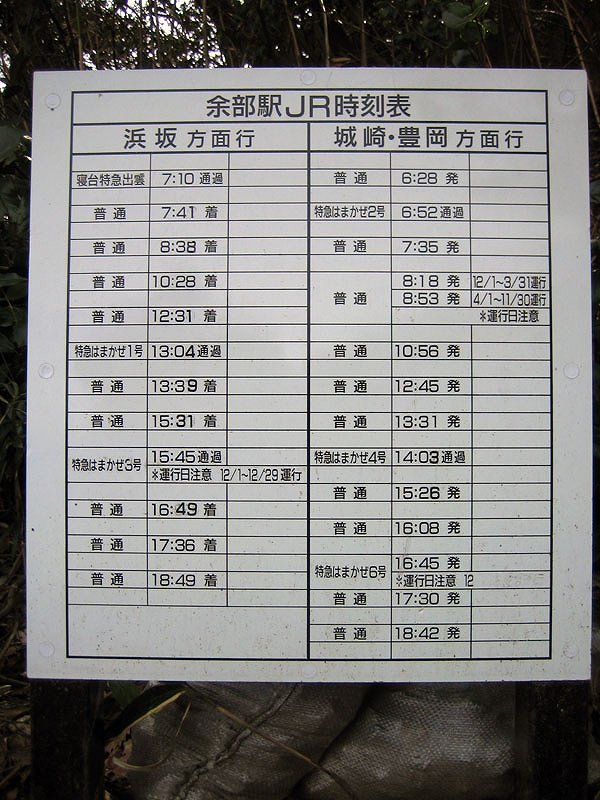 余部駅JR時刻表
浜坂方面行
寝台特急出雲 7:10 通過
普通 7:41 着
普通 8:38 着
普通 10:28 着
普通 12:31 着
特急はまかぜ1号 13:04 通過
普通 13:39 着
普通 15:31 着
特急はまかぜ3号 15:45 通過
※運行日注意 12/1~12/29運行
普通 16:49 着
普通 17:36 着
普通 18:49 着
城崎・豊岡方面行
普通 6:28 発
特急はまかぜ2号 6:52 通過
普通 7:35 発
普通 8:18 発 12/1~3/31運行
8:53 発 4/1~11/30運行
※運行日注意
普通 10:56 発
普通 12:45 発
普通 13:31 発
特急はまかぜ4号 14:03 通過
普通 15:26 発
普通 16:08 発
特急はまかぜ6号 16:45 発
※運行日注意 12
普通 17:30 発
普通 18:42 発